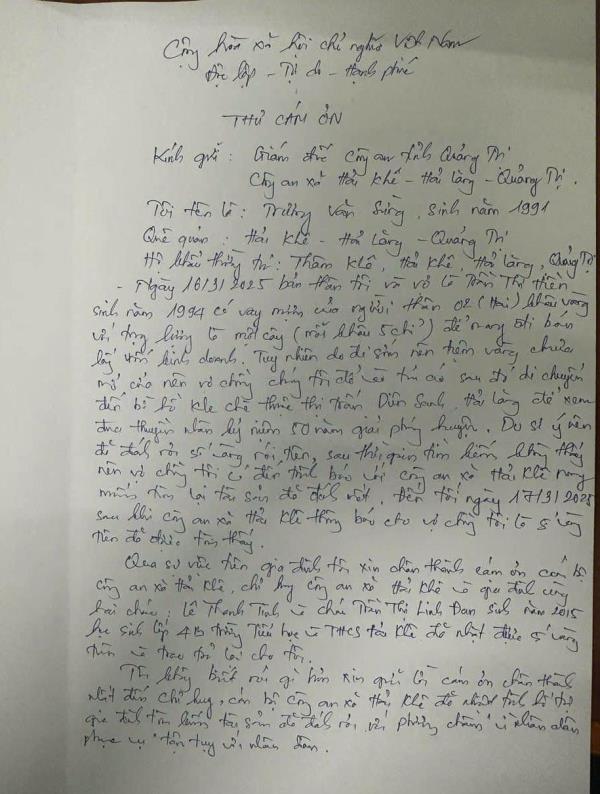 Cộng hòa xã hội chủ nghĩa Việt Nam
Độc lập - Tự do - Hạnh phúc
THƯ CẢM ƠN
Kính gửi : Giám đốc công an tỉnh Quảng Trị
Công an xã Hải Khê - Hải Lăng - Quảng Trị.
Tôi tên là : Trương Văn Sừng, sinh năm 1991
Quê quán : Hải Khê - Hải Lăng - Quảng Trị
Hộ khẩu thường trú : Thâm Khê, Hải Khê, Hải Lăng, Quảng Trị
- Ngày 16/3/2025 bản thân tôi và vợ là Trần Thị Hiền
sinh năm 1994 có vay mượn của người thân 02 (Hai) khâu vàng
với trọng lượng là một cây (mỗi khâu 5 chỉ) để mang đi bán
lấy vốn kinh doanh. Tuy nhiên do đi sớm nên tiệm vàng chưa
mở cửa nên vợ chồng chúng tôi để vào túi áo sau đó di chuyển
đến bờ hồ Khe Chè thuộc thị trấn Diên Sanh, Hải Lăng để xem
đua thuyền nhân kỷ niệm 50 năm giải phóng huyện. Do sơ ý nên
đã đánh rơi số vàng nói trên, sau thời gian tìm kiếm không thấy
nên vợ chồng tôi có đến trình báo với công an xã Hải Khê mong
muốn tìm lại tài sản đã đánh mất. Đến tối ngày 17/3/2025
sau khi công an xã Hải Khê thông báo cho vợ chồng tôi là số vàng
trên đã được tìm thấy.
Qua sự việc trên gia đình tôi xin chân thành cảm ơn cán bộ
công an xã Hải Khê, chỉ huy công an xã Hải Khê và gia đình cùng
hai cháu: Lê Thanh Tình và cháu Trần Thị Linh Đan sinh năm 2015
học sinh lớp 4B trường Tiểu học và THCS Hải Khê đã nhặt được số vàng
trên và trao trả lại cho tôi.
Tôi không biết nói gì hơn xin gửi lời cảm ơn chân thành
nhất đến chỉ huy, cán bộ công an xã Hải Khê đã nhiệt tình hỗ trợ
gia đình tìm kiếm tài sản đã đánh rơi với phương châm "vì nhân dân
phục vụ" tận tụy với nhân dân.